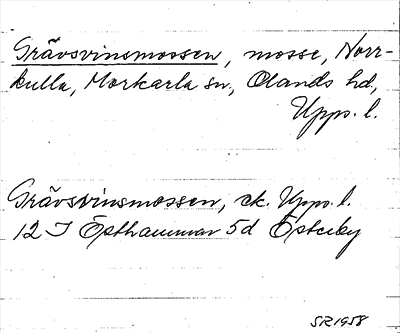 Grävsvinsmossen, mosse, Norr-
kulla, Morkarla sn, Olands hd,
Upps. l.
Grävsvinsmossen, ek. Upps. l.
12 I Östhammar 5d Österby
SR 1958